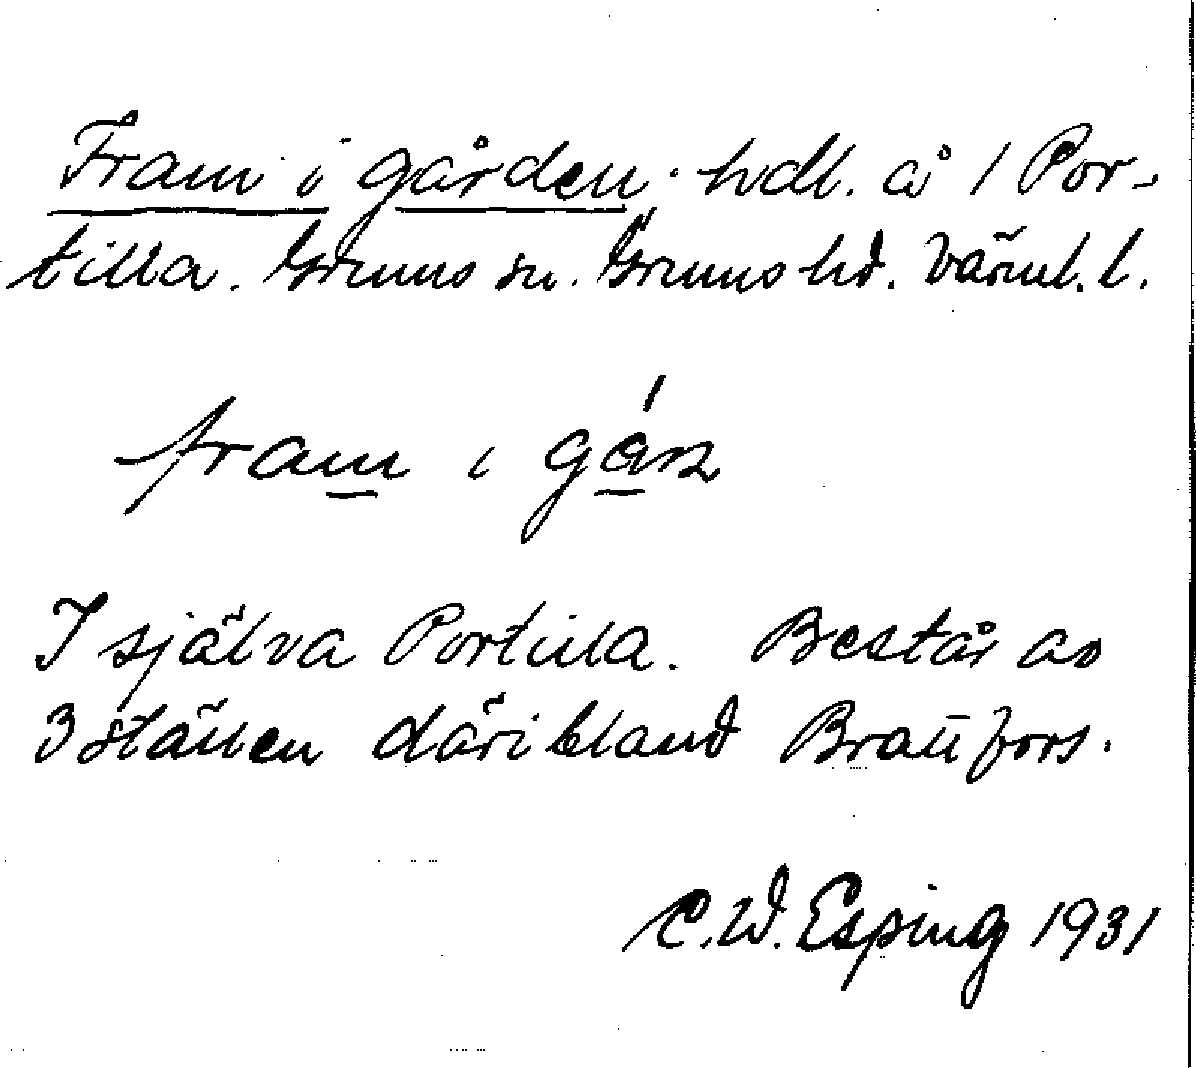 Fram i gården. hdl. å 1 Por-
tilla. Grums sn. Grums hd. Värml. l.
fram i gán
I själva Portilla. Består av
3 ställen däribland Brattfors.
C.W. Esping 1931